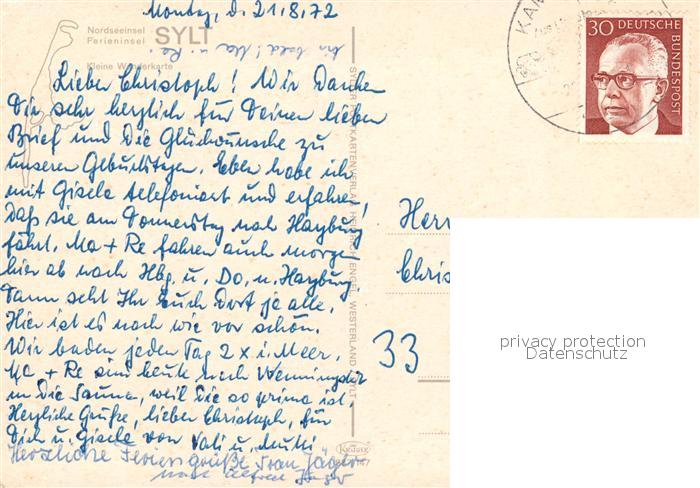 Montag, d. 21.8.72
Nordseeinsel
Ferieninsel SYLT
bis bald! Ma u. Re.
Kleine Wanderkarte
Lieber Christoph! Wir danken
Dir sehr herzlich für Deinen lieben
Brief und die Glückwünsche zu
unseren Geburtstagen. Eben habe ich
mit Gisela telefoniert und erfahren,
daß sie am Donnerstag nach Harburg
fährt. Ma + Re fahren auch morgen
hier ab nach Hbg. u. Do. n. Harburg
Dann seht Ihr Euch dort ja alle.
Hier ist es nach wie vor schön.
Wir baden jeden Tag 2 x i. Meer.
Ma + Re sind heute nach Wenningstedt
in die Sauna, weil die so prima ist.
Herzliche Grüße, lieber Christoph, für
Dich u. Gisela von Vati u. Mutti
Herzliche Feriengrüße Frau Jäger
und Alfred Jäger
SYLTER POSTKARTENVERLAG HEINRICH ENGEL, WESTERLAND / SYLT
KRÜGER
30 DEUTSCHE
BUNDESPOST
KAM
Herr
Chris
33
privacy protection
Datenschutz